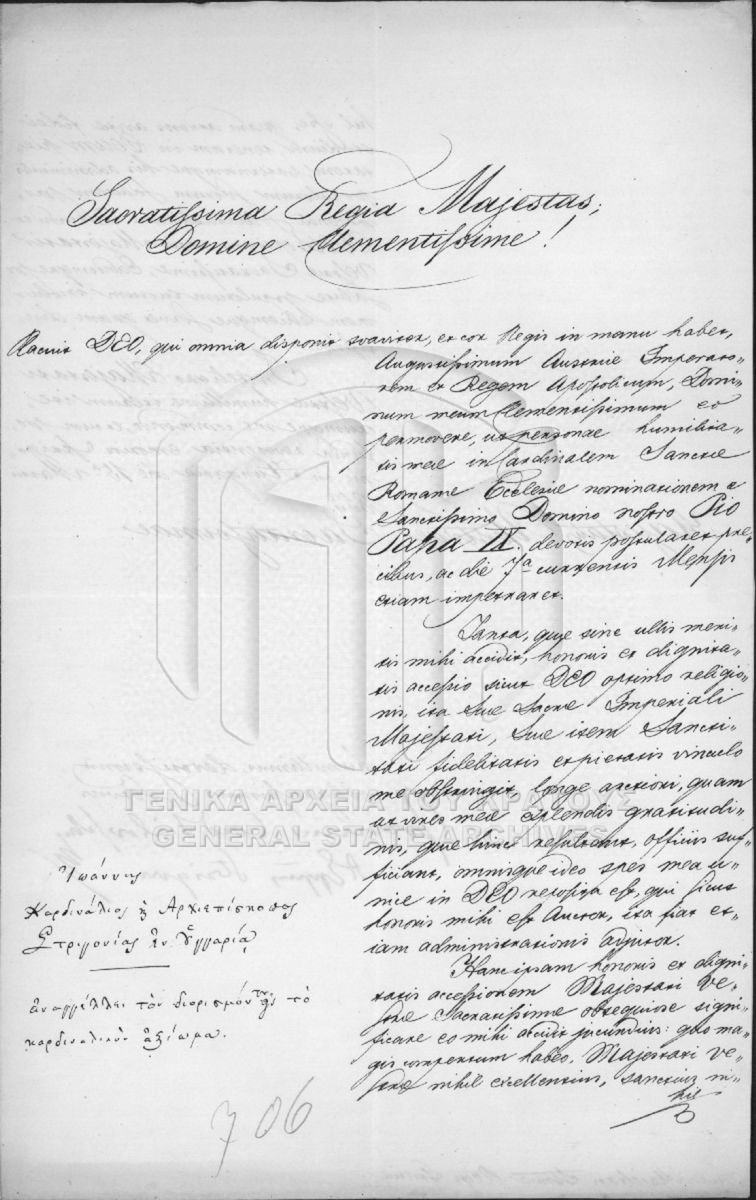 Sacratissima Regia Majestas;
Domine Clementissime!
Placuit DEO, qui omnia disponit svaviter, et cor Regis in manu habet,
Augustissimum Austriae Imperato-
rem et Regem Apostolicum, Domi-
num meum Clementissimum eo
permovere, ut personae humilita-
tis meae in Cardinalem Sanctae
Romanae Ecclesiae nominationem a
Sanctissimo Domino nostro Pio
Papa IX. devotis postularet pre-
cibus, ac die 7a currentis Mensis
etiam impetraret.
Tanta, quae sine ullis meri-
tis mihi accidit, honoris et dignita-
tis accessio sicut DEO optimo religio-
nis, ita Suae Sacrae Imperiali
Majestati, Suae item Sancti-
tati fidelitatis et pietatis vinculo
me obstringit, longe arctiori, quam
ut vires meae splendis gratitudi-
nis, quae hinc resultant, officiis suf-
ficiant, omnisque ideo spes mea u-
nice in DEO reposita est, qui sicut
honoris mihi est Auctor, ita fiat et-
iam administrationis adjutor.
Hanc ipsam honoris et digni-
tatis accessionem Majestati Ve-
strae Sacratissimae obsequiose signi-
ficare eo mihi accidit jucundius: quo ma-
gis compertum habeo, Majestati Ve-
strae nihil excellentius, sanctius ni-
hil
Ἰωάννης
Καρδινάλιος ἢ Ἀρχιεπίσκοπος
Στριγονίας ἐν Οὑγγαρίᾳ
ἀναγγέλλει τὸν διορισμόν του εἰς τὸ
καρδιναλικὸν ἀξίωμα.
706
ΓΕΝΙΚΑ ΑΡΧΕΙΑ ΤΟΥ ΚΡΑΤΟΥΣ
GENERAL STATE ARCHIVES